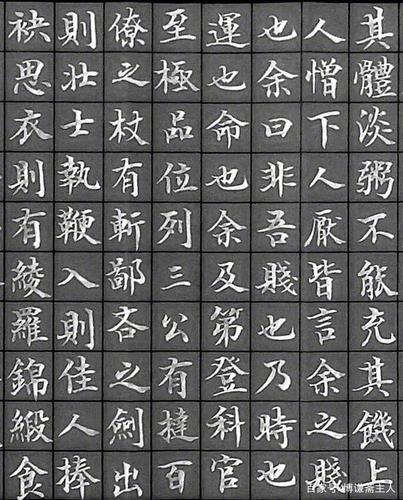 其體淡粥不能充其饑上
人憎下人厭皆言余之賤
也余曰非吾賤也乃時也
運也命也余及第登科官
至極品位列三公有撻百
僚之杖有斬鄙吝之劍出
則壯士執鞭入則佳人棒
袂思衣則有綾羅錦緞食
百家号/博谦斋主人